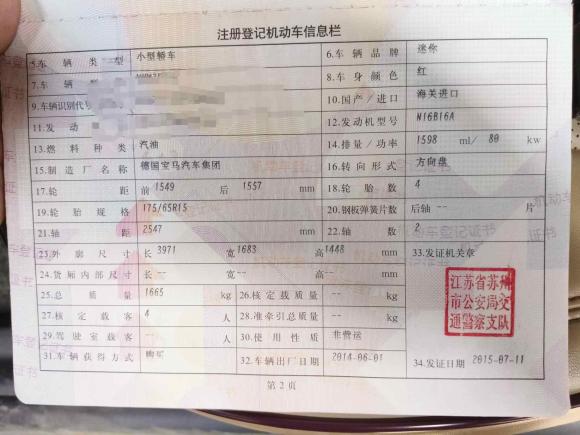 注册登记机动车信息栏
5.车辆类型 小型轿车 6.车辆品牌 迷你
7.车辆 8.车身颜色 红
9.车辆识别代号 10.国产/进口 海关进口
11.发动 12.发动机型号 N16B16A
13.燃料种类 汽油 14.排量/功率 1598 ml/ 80 kw
15.制造厂名称 德国宝马汽车集团 16.转向形式 方向盘
17.轮距 前 1549 后 1557 mm 18.轮胎数 4
19.轮胎规格 175/65R15 20.钢板弹簧片数 后轴 -- 片
21.轴距 2547 mm 22.轴数 2
23.外廓尺寸 长 3971 宽 1683 高 1448 mm 33.发证机关章
24.货厢内部尺寸 长 -- 宽 -- 高 -- mm
江苏省苏州
市公安局交
通警察支队
25.总质量 1665 kg 26.核定载质量 -- kg
27.核定载客 4 人 28.准牵引总质量 -- kg
29.驾驶室载客 -- 人 30.使用性质 非营运
31.车辆获得方式 购买 32.车辆出厂日期 2014-06-01 34.发证日期 2015-07-11
第2页